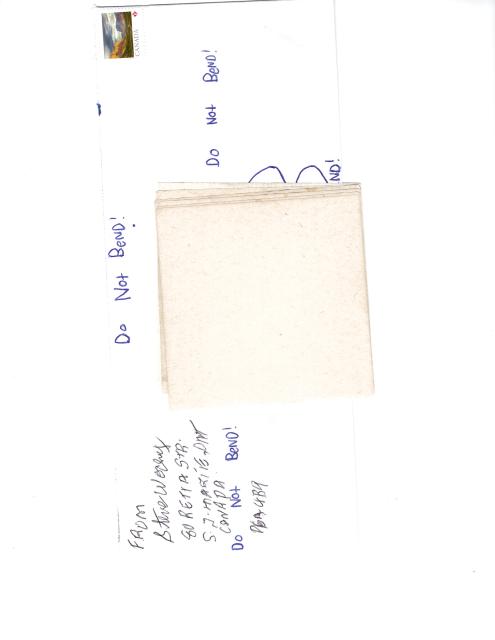 CANADA
Do Not Bend!
Do Not Bend!
ND!
FROM
Steve
80 RETTA STR.
S.S. MARIE ONT
CANADA
Do Not Bend!
P6A 4B9